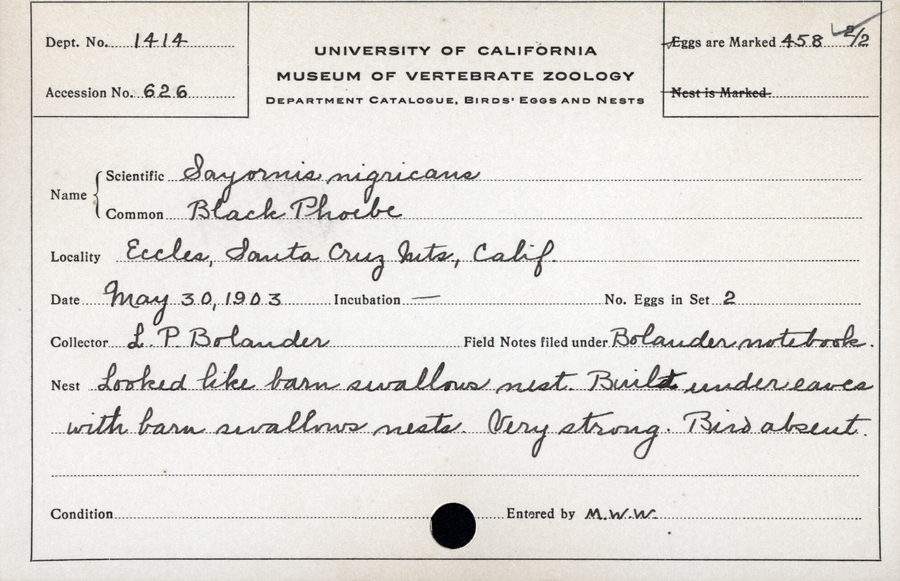 Dept. No. 1414
Accession No. 626
UNIVERSITY OF CALIFORNIA
MUSEUM OF VERTEBRATE ZOOLOGY
DEPARTMENT CATALOGUE, BIRDS' EGGS AND NESTS
Eggs are Marked 458 2/2
Nest is Marked
Name
Scientific Sayornis nigricans
Common Black Phoebe
Locality Eccles, Santa Cruz Mts, Calif.
Date May 30, 1903 Incubation — No. Eggs in Set 2
Collector L. P. Bolander Field Notes filed under Bolander notebook.
Nest Looked like barn swallows nest. Build under eaves
with barn swallows nests. Very strong. Bird absent.
Condition Entered by M.W.W.